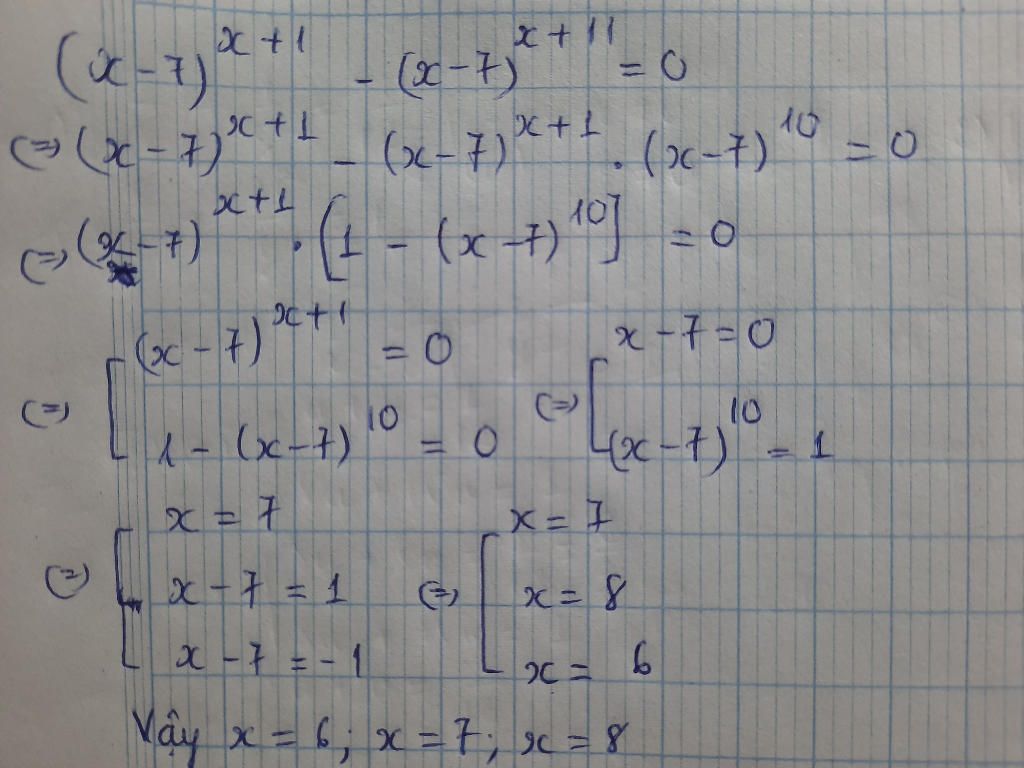 (x-7)^{x+1} - (x-7)^{x+11} = 0
(=) (x-7)^{x+1} - (x-7)^{x+1} . (x-7)^{10} = 0
(=) (x-7)^{x+1} . [1 - (x-7)^{10}] = 0
(=) [ (x-7)^{x+1} = 0 (=) [ x-7=0
1 - (x-7)^{10} = 0 (x-7)^{10} = 1
(=) [ x = 7 [ x = 7
x-7 = 1 (=) x = 8
x-7 = -1 x = 6
Vậy x = 6; x = 7; x = 8